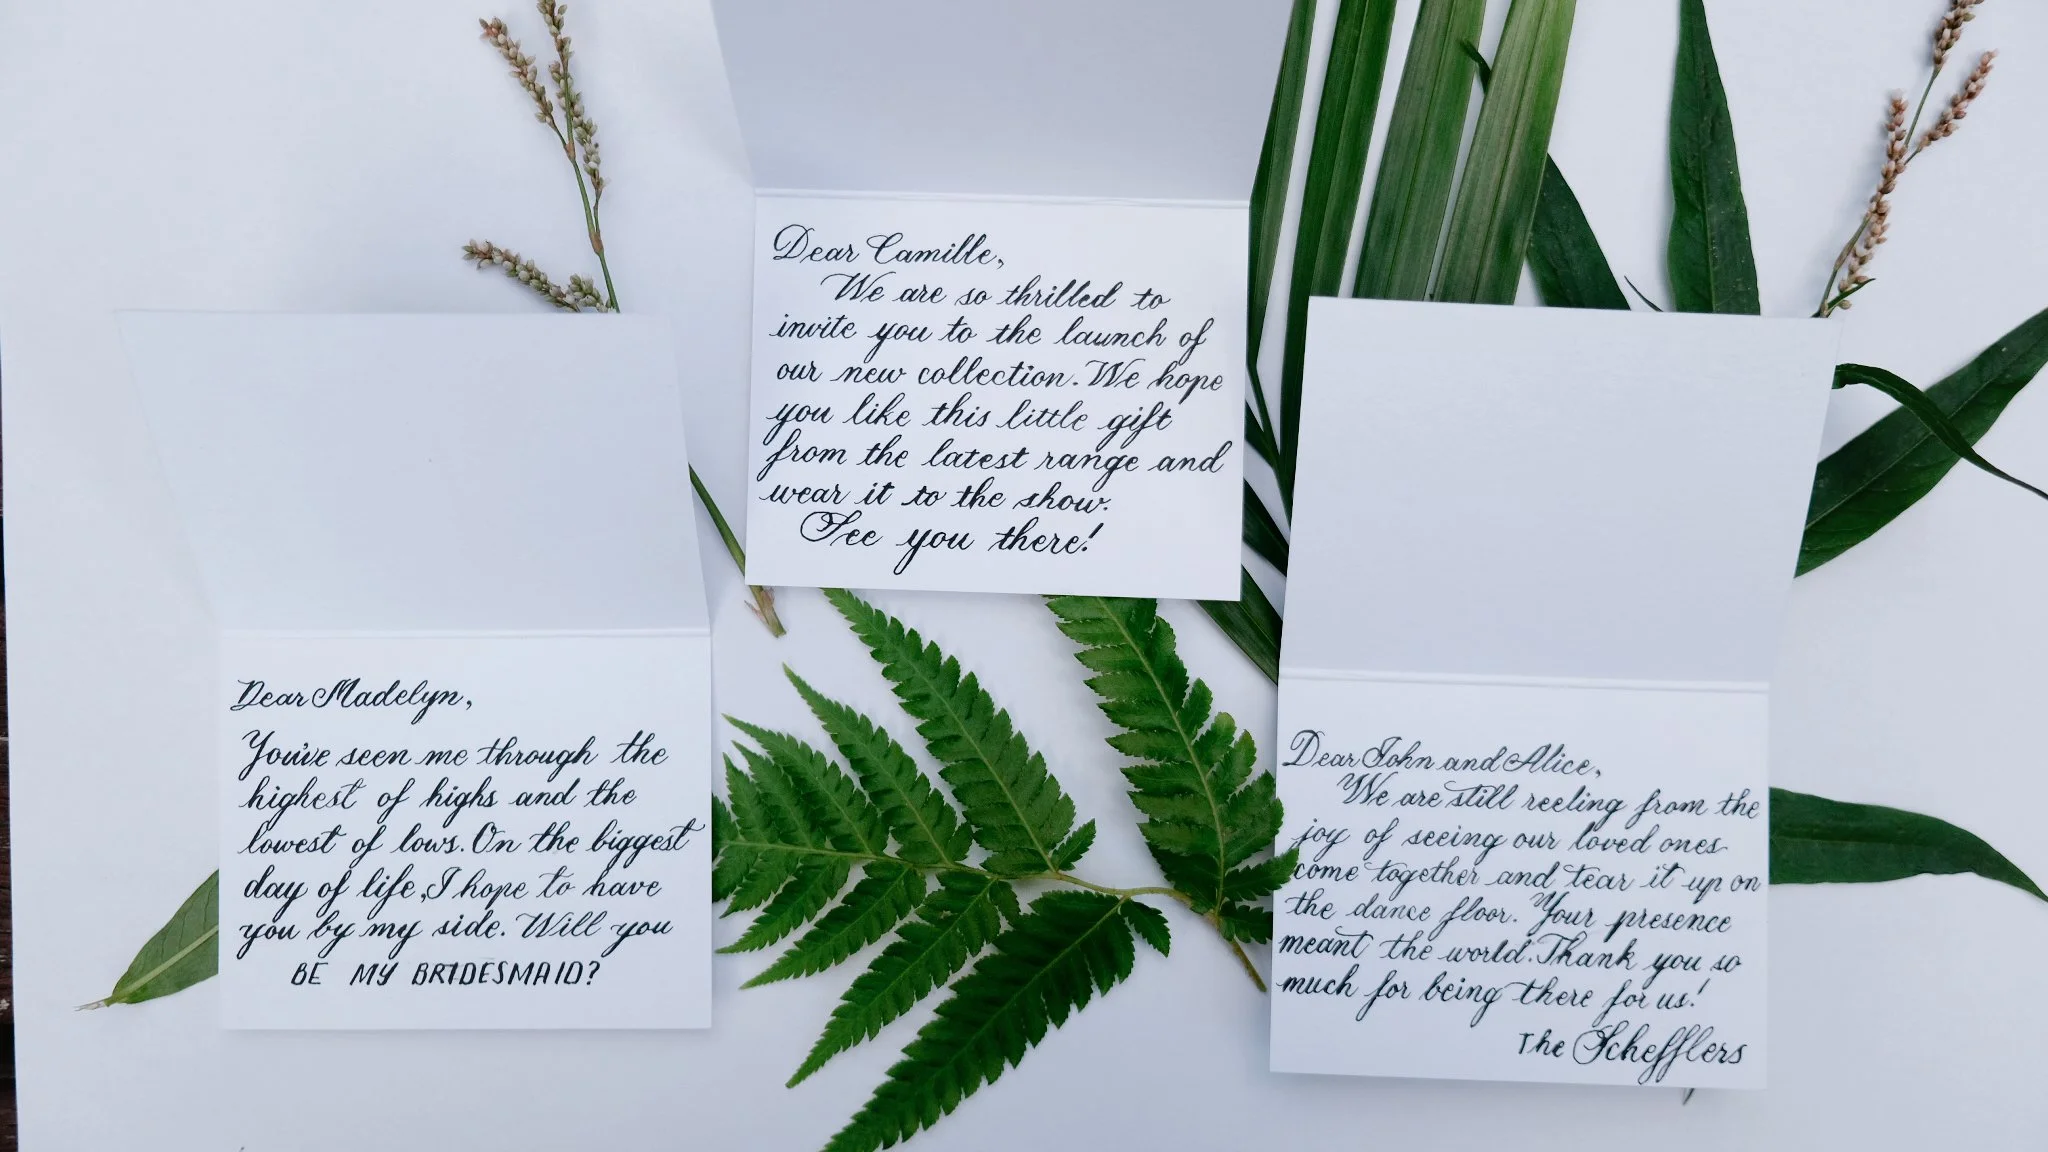 Dear Madelyn,
You've seen me through the
highest of highs and the
lowest of lows. On the biggest
day of life, I hope to have
you by my side. Will you
BE MY BRIDESMAID?
Dear Camille,
We are so thrilled to
invite you to the launch of
our new collection. We hope
you like this little gift
from the latest range and
wear it to the show.
See you there!
Dear John and Alice,
We are still reeling from the
joy of seeing our loved ones
come together and tear it up on
the dance floor. Your presence
meant the world. Thank you so
much for being there for us!
The Schefflers